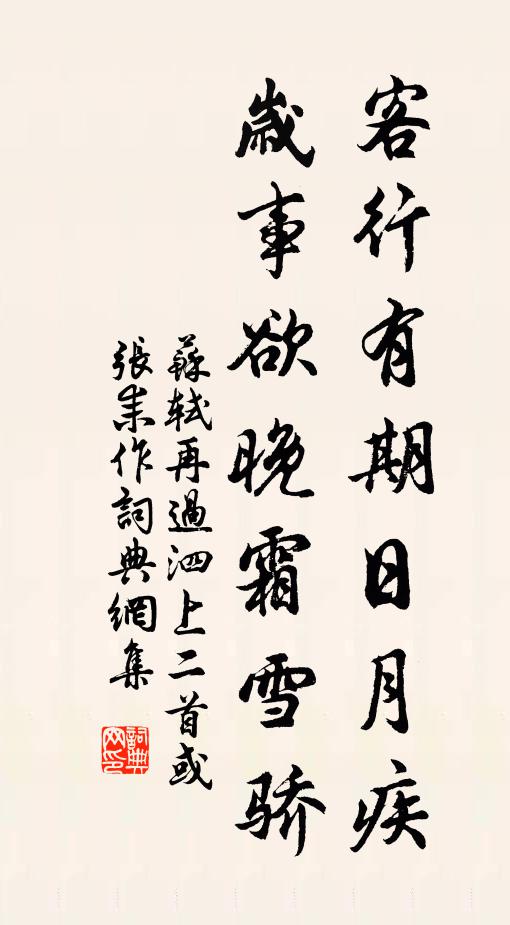 客行有期日月疾
歲事欲晚霜雪骄
蘇軾再過泗上二首或
張耒作詞典網集
詞典网印